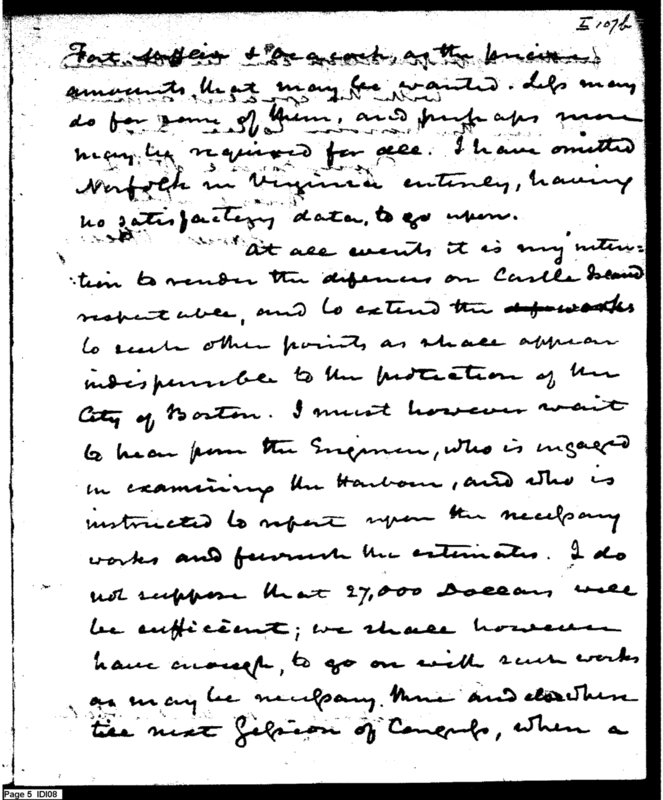 I 107b
Fort Mifflin & Peacock, as the precise
amounts that may be wanted. Less may
do for some of them, and perhaps more
may be required for all. I have omitted
Norfolk in Virginia entirely, having
no satisfactory data, to go upon.
At all events it is my inten=
tion to render the defences on Castle Island
respectable, and to extend the works
to such other points as shall appear
indispensible to the protection of the
City of Boston. I must however wait
to hear from the Engineer, who is engaged
in examining the Harbour, and who is
instructed to report upon the necessary
works and furnish the estimates. I do
not suppose that 27,000 Dollars will
be sufficient; we shall however
have enough, to go on with such works
as may be necessary there and elsewhere
till next Session of Congress, when a
Page 5 IDI08